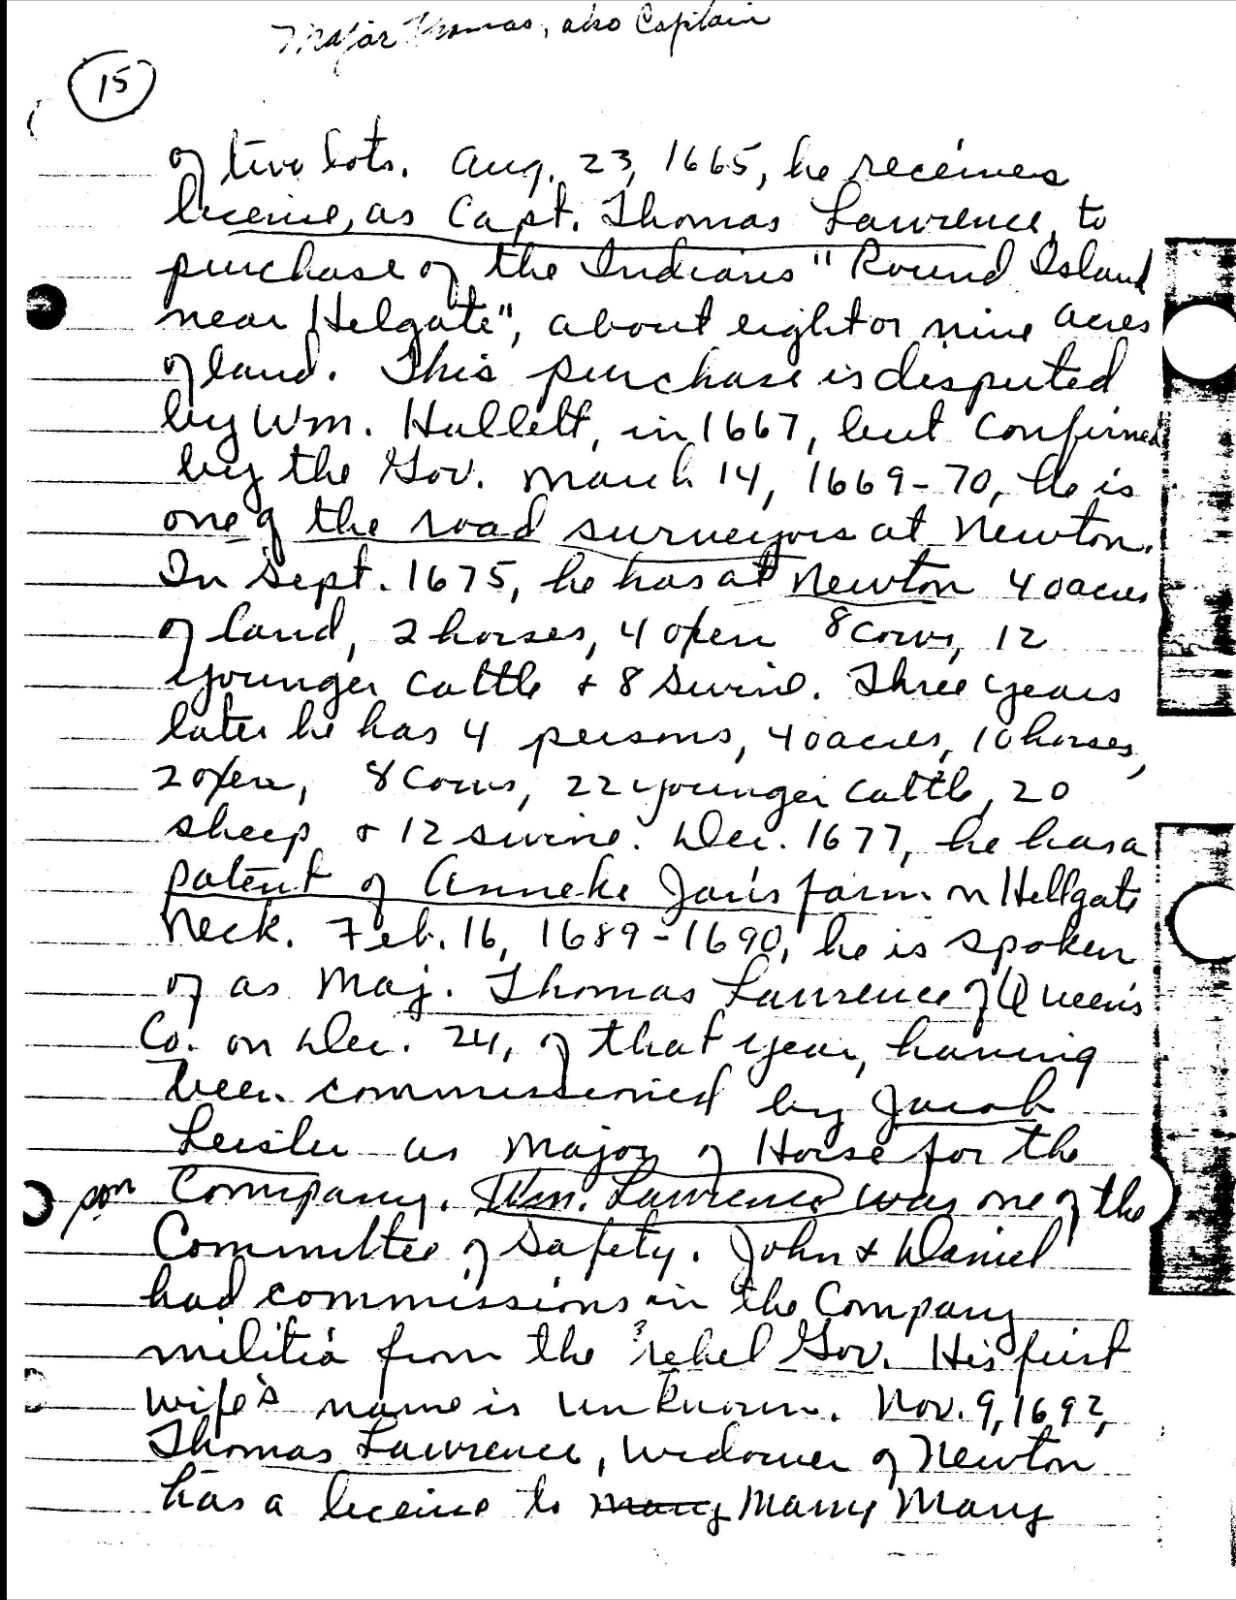 Major Thomas, also Captain
15
of two lots. Aug. 23, 1665, he receives
license, as Capt. Thomas Lawrence, to
purchase of the Indians "Round Island
near Helgate", about eight or nine acres
of land. This purchase is disputed
by Wm. Hallett, in 1667, but confirmed
by the Gov. March 14, 1669-70, he is
one of the road surveyors at Newton.
In Sept. 1675, he has at Newton 40 acres
of land, 2 horses, 4 oxen 8 cows, 12
younger cattle & 8 swine. Three years
later he has 4 persons, 40 acres, 10 horses,
2 oxen, 8 cows, 22 younger cattle, 20
sheep & 12 swine. Dec. 1677, he has a
patent of Anneke Jan's farm on Hellgate
Neck. Feb. 16, 1689-1690, he is spoken
of as Maj. Thomas Lawrence of Queen's
Co. on Dec. 24, of that year, having
been commissioned by Jacob
Leisler as Major of Horse for the
son Company. Wm. Lawrence was one of the
Committee of Safety. John & Daniel
had commissions in the Company
militia from the ? rebel Gov. His first
wife's name is unknown. Nov. 9, 1692,
Thomas Lawrence, widower of Newton
has a license to Marry Mary